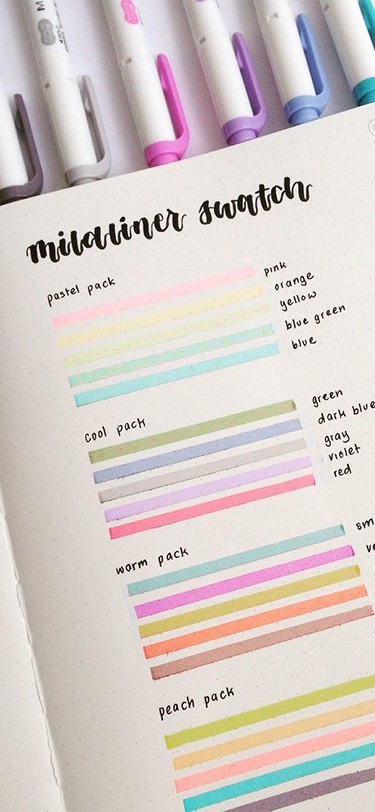 mildliner swatch
pastel pack
pink
orange
yellow
blue green
blue
cool pack
green
dark blue
gray
violet
red
warm pack
peach pack